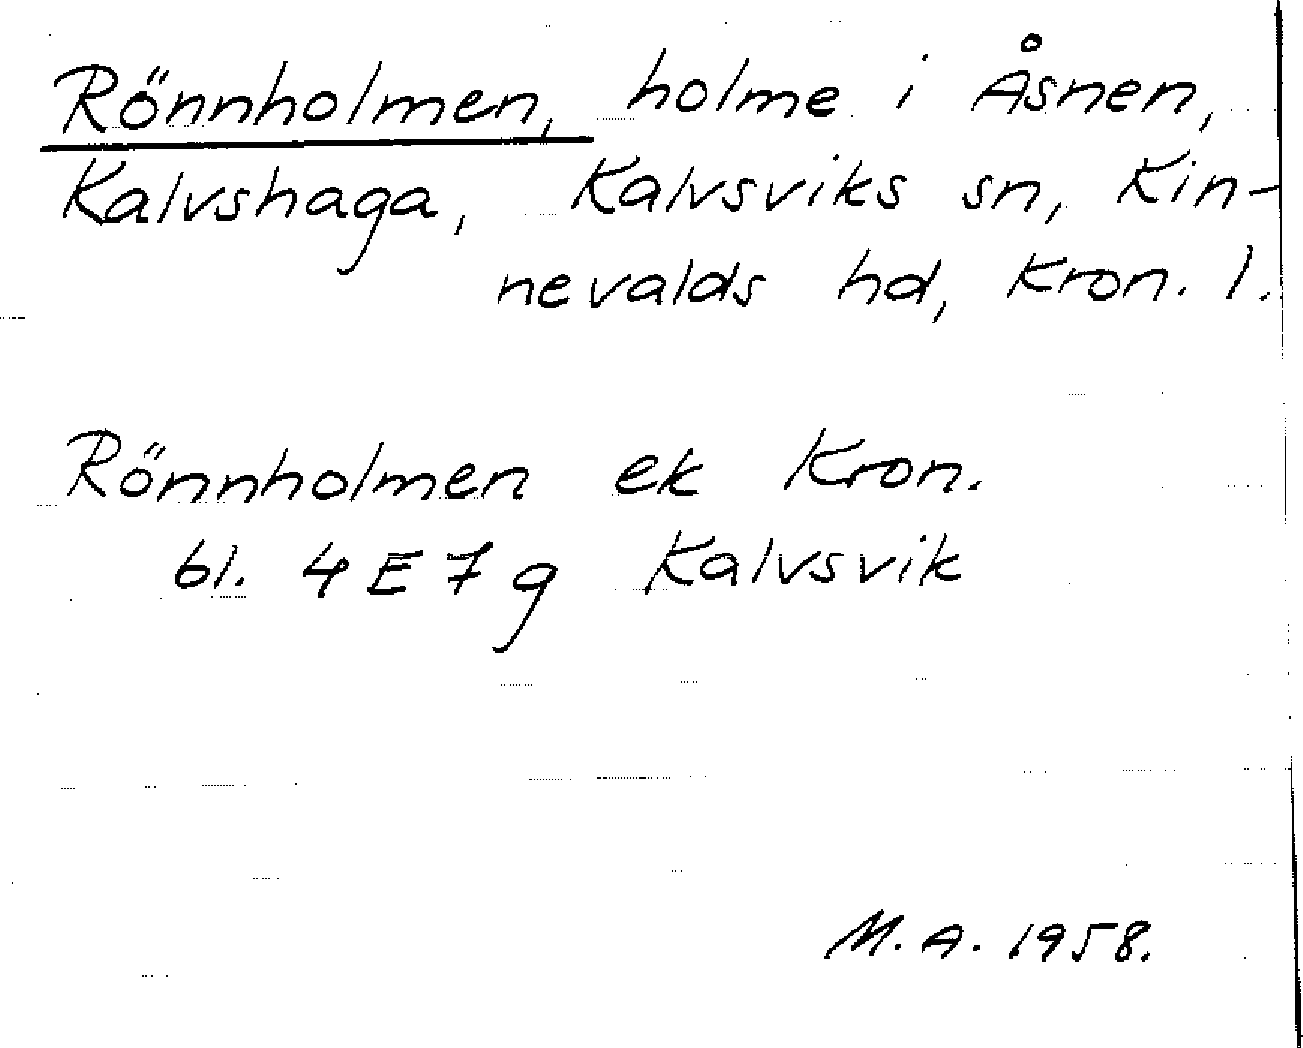 Rönnholmen, holme i Åsnen,
Kalvshaga, Kalvsviks sn, Kin-
nevalds hd, Kron. l.
Rönnholmen ek Kron.
bl. 4 E 7 g Kalvsvik
M. A. 1958.